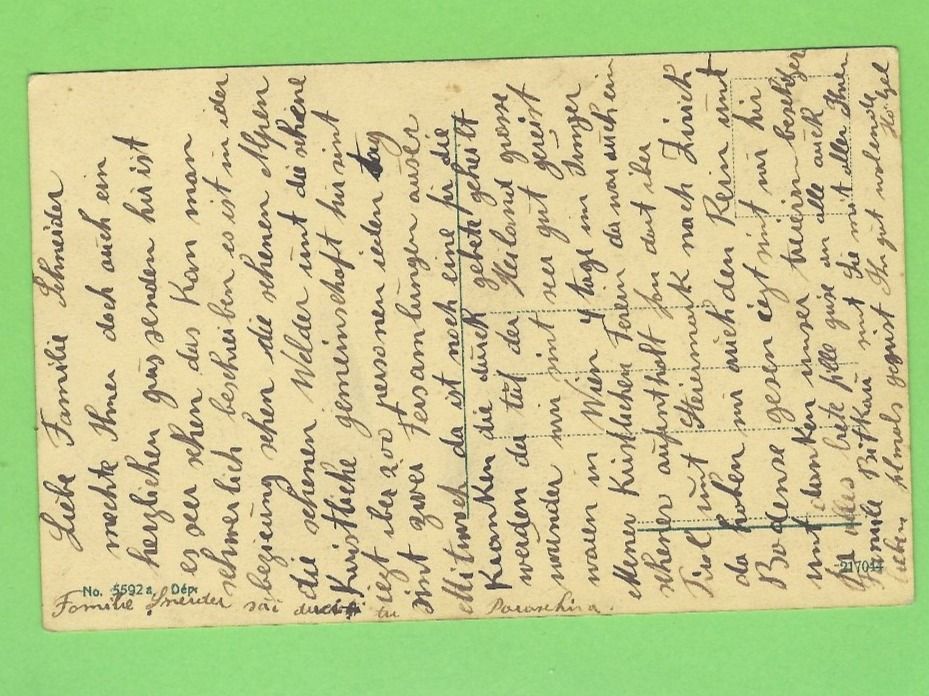 Liebe Familie Schneider
mechte Ihnen doch auch ein
herzlichen grus senden hir ist
es seer schen das kan man
schwerlich beschreiben es ist in der
begirung sehen die schenen Alpen
die schenen Welder unt die schene
Kristliche gemeinschaft hir sint
iezt iber 200 personen ieden tag
sint zwei Fersamlungen auser
Mitwoch da ist noch eine fir die
Kranken die durch gebete geheilt
werden da tut der Heiland grosse
wunder wir sint seer gut gereist
waren in Wien 4 tage im Junger
Mener Kristlichen Ferein da war auch ein
schener aufenthalt fon dort iber
Tirol unt Steiermark nach Zürich
da haben wir auch den Rein unt
Bodense gesen iezt sint wir hir
unt danken unser treien beschizer
fir alles bite file grise an alle auch
Familie unt Sie mit aller Ihren
lieben filmals gegrist Ihr gut wolende
Familie Sneider
No. 5592 a Dép.
217044